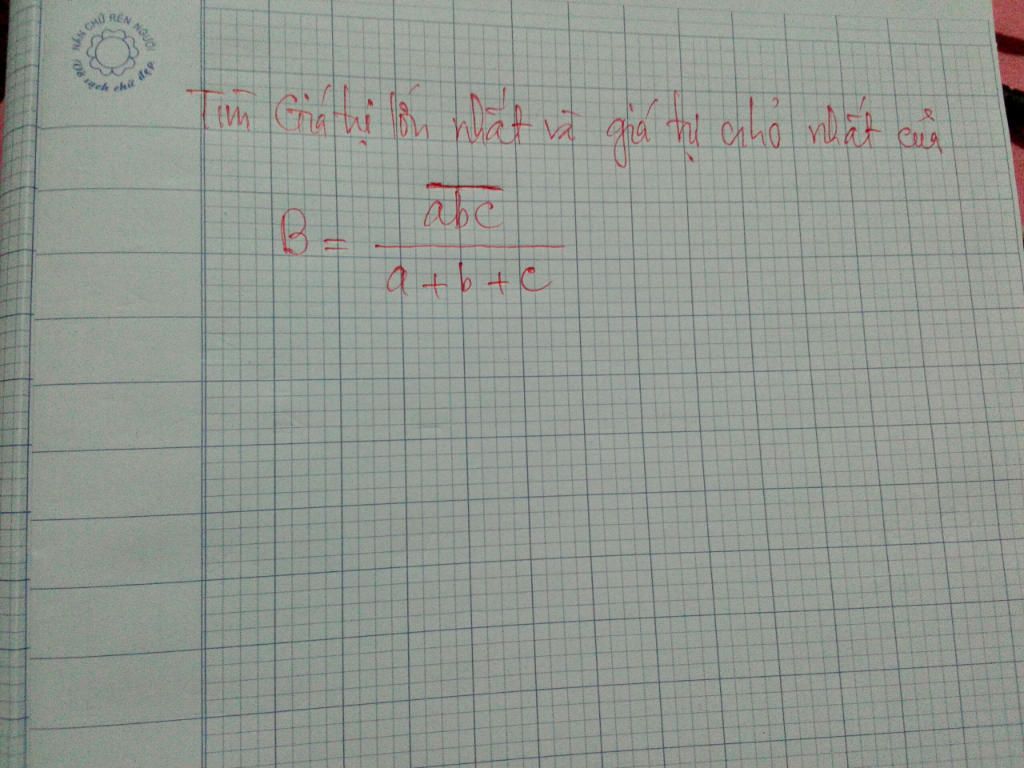 NẮN CHỮ RÈN NGƯỜI
Vở sạch chữ đẹp
Tìm Giá trị lớn nhất và giá trị nhỏ nhất của
B = \frac{\overline{abc}}{a + b + c}